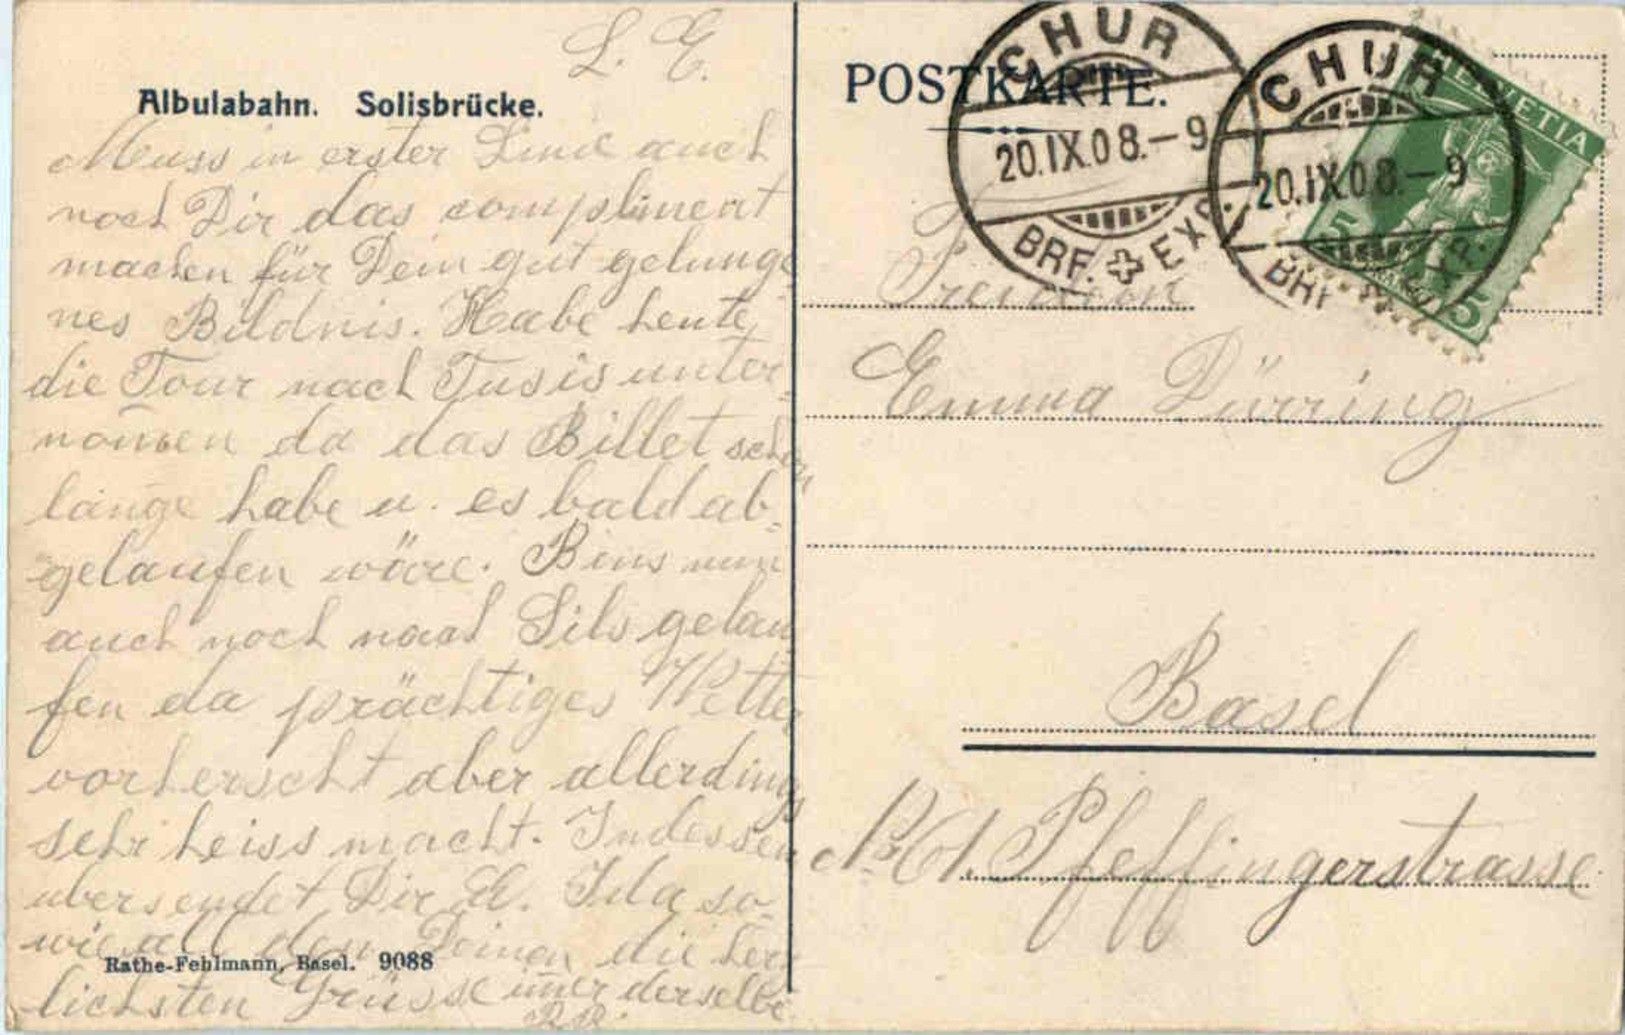 L. E.
Albulabahn. Solisbrücke.
Muss in erster Linie auch
noch Dir das compliment
machen für Dein gut gelunge
nes Bildnis. Habe heute
die Tour nach Tusis unter-
nom̄en da das Billet schon
lange habe u. es bald ab-
gelaufen wäre. Bins nun
auch noch nach Sils gelau
fen da prächtiges Wetter
vorherscht aber allerdings
sehr heiss macht. Indessen
übersendet Dir Ida so-
wie all den Deinen die herz
lichsten Grüsse im̄er derselbe
Rathe-Fehlmann, Basel. 9088
POSTKARTE.
CHUR
20.IX.08.–9
BRF. EXP.
CHUR
20.IX.08.–9
BRF. EXP.
HELVETIA
5
5
Emma Dürring
Basel
Pfeffingerstrasse